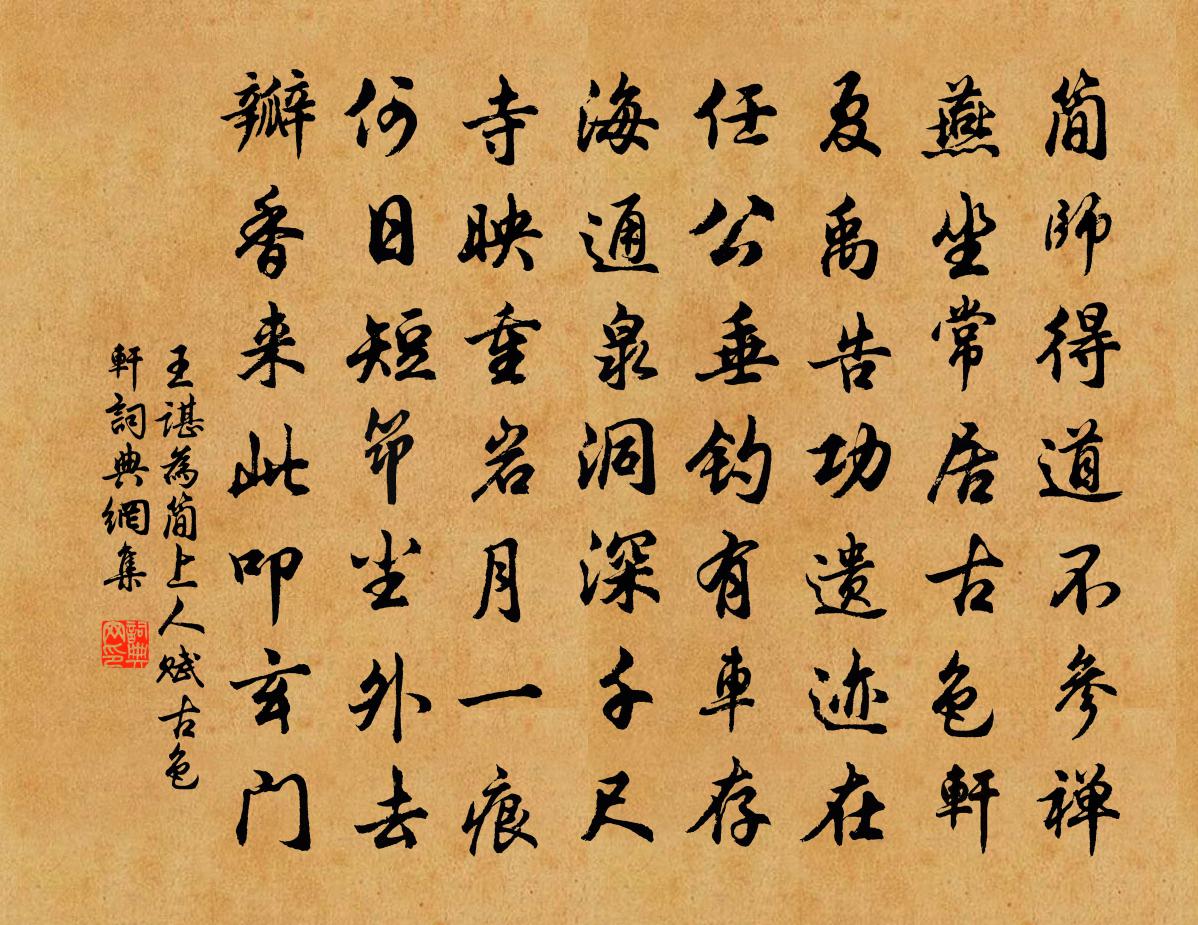 简师得道不参禅
燕坐常居古色軒
夏禹告功遗迹在
任公垂钓有車存
海通泉洞深千尺
寺映重岩月一痕
何日短筇尘外去
瓣香来此叩玄门
王谌為简上人赋古色
軒詞典網集
詞典
网印